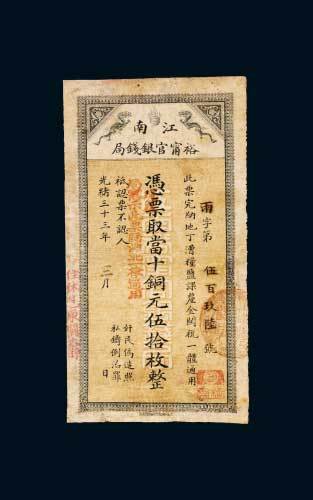 江南
裕甯官銀錢局
此票完納地丁漕糧鹽課釐金關稅一體通用
雨字第 伍百玖陸 號
憑票取當十銅元伍拾枚整
祗認票不認人
光緒三十三年 三月 日
許民僞造照
私鑄例治罪